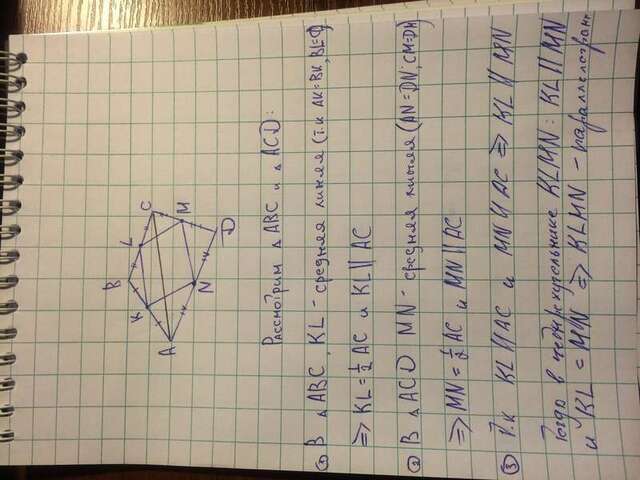 B
K
L
C
A
M
N
D
Рассмотрим △ ABC и △ ACD:
① В △ ABC, KL - средняя линия (т.к AK=BK, BL=
⇒ KL = ½ AC и KL || AC
② В △ ACD MN - средняя (AN=DN; CM=DM)
⇒ MN = ½ AC и MN || AC
③ Т.к KL || AC и MN || AC ⇒ KL || MN
Тогда в четырехугольнике KLMN: KL || MN
и KL = MN ⇒ KLMN - параллелограмм